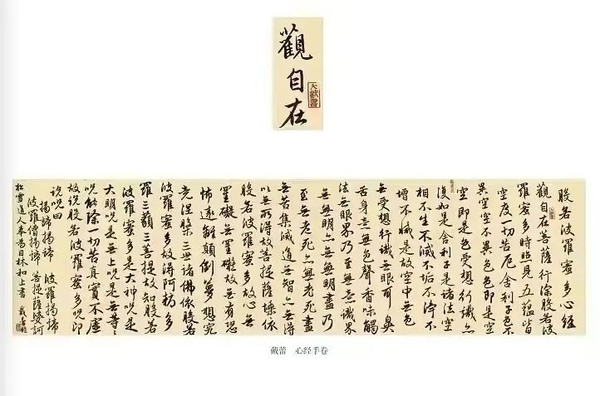 觀自在
般若波羅蜜多心經
觀自在菩薩行深般若波
羅蜜多時照見五蘊皆
空度一切苦厄舍利子色不
異空空不異色色即是空
空即是色受想行識亦
復如是舍利子是諸法空
相不生不滅不垢不淨不
增不減是故空中無色
無受想行識無眼耳鼻
舌身意無色聲香味觸
法無眼界乃至無意識界
無無明亦無無明盡乃
至無老死亦無老死盡
無苦集滅道無智亦無得
以無所得故菩提薩埵依
般若波羅蜜多故心無
罣礙無罣礙故無有恐
怖遠離顛倒夢想究
竟涅槃三世諸佛依般若
波羅蜜多故得阿耨多
羅三藐三菩提故知般若
波羅蜜多呪是大神呪是
大明呪是無上呪是無等等
呪能除一切苦真實不虛
故說般若波羅蜜多呪即
說呪曰
揭諦揭諦 波羅揭諦
波羅僧揭諦 菩提薩婆訶
松雪道人奉為日林和上書 戴蕾
戴蕾 心经手卷